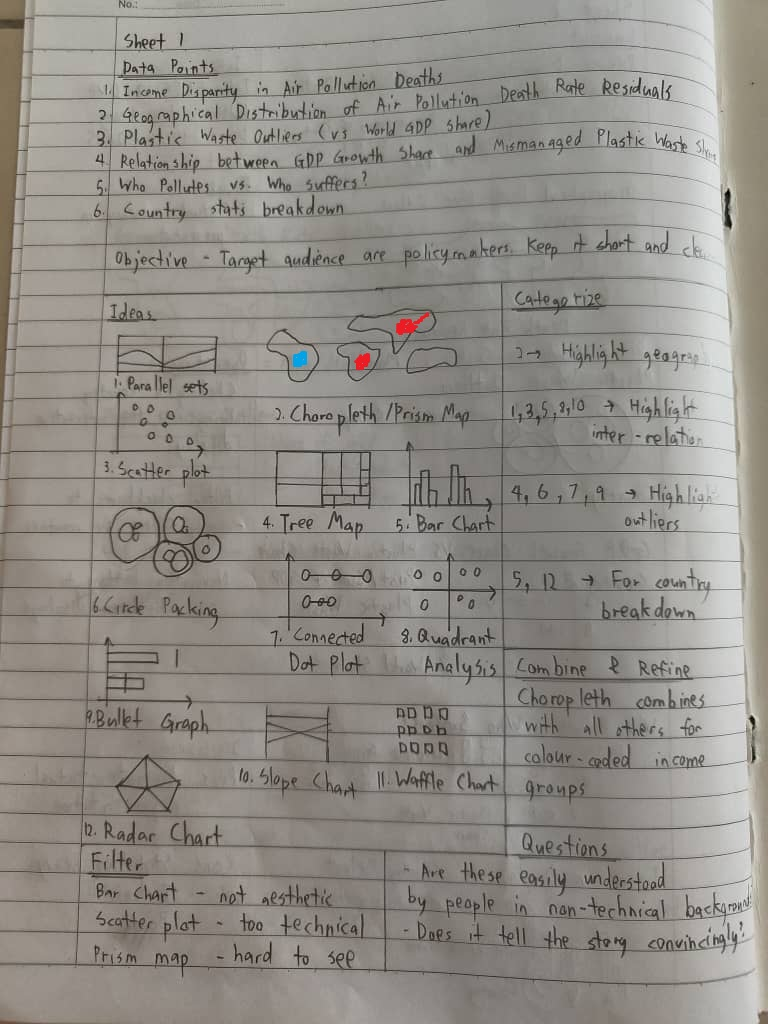 No.:
Sheet 1
Data Points
1. Income Disparity in Air Pollution Deaths
2. Geographical Distribution of Air Pollution Death Rate Residuals
3. Plastic Waste Outliers (vs World GDP share)
4. Relationship between GDP Growth Share and Mismanaged Plastic Waste
5. Who Pollutes vs. Who suffers?
6. Country stats breakdown
Objective - Target audience are policymakers. Keep it short and
Ideas
1. Parallel sets
2. Choropleth / Prism Map
3. Scatter plot
4. Tree Map
5. Bar Chart
6. Circle Packing
7. Connected
Dot Plot
8. Quadrant
Analysis
9. Bullet Graph
10. Slope Chart
11. Waffle Chart
12. Radar Chart
Categorize
2 → Highlight
1, 3, 5, 8, 10 → Highlight
inter-relation
4, 6, 7, 9 → Highlight
outliers
5, 12 → For country
breakdown
Combine & Refine
Choropleth combines
with all others for
colour-coded income
groups
Filter
Bar chart - not aesthetic
Scatter plot - too technical
Prism map - hard to see
Questions
- Are these easily understood
by people in non-technical background
- Does it tell the story convincingly?